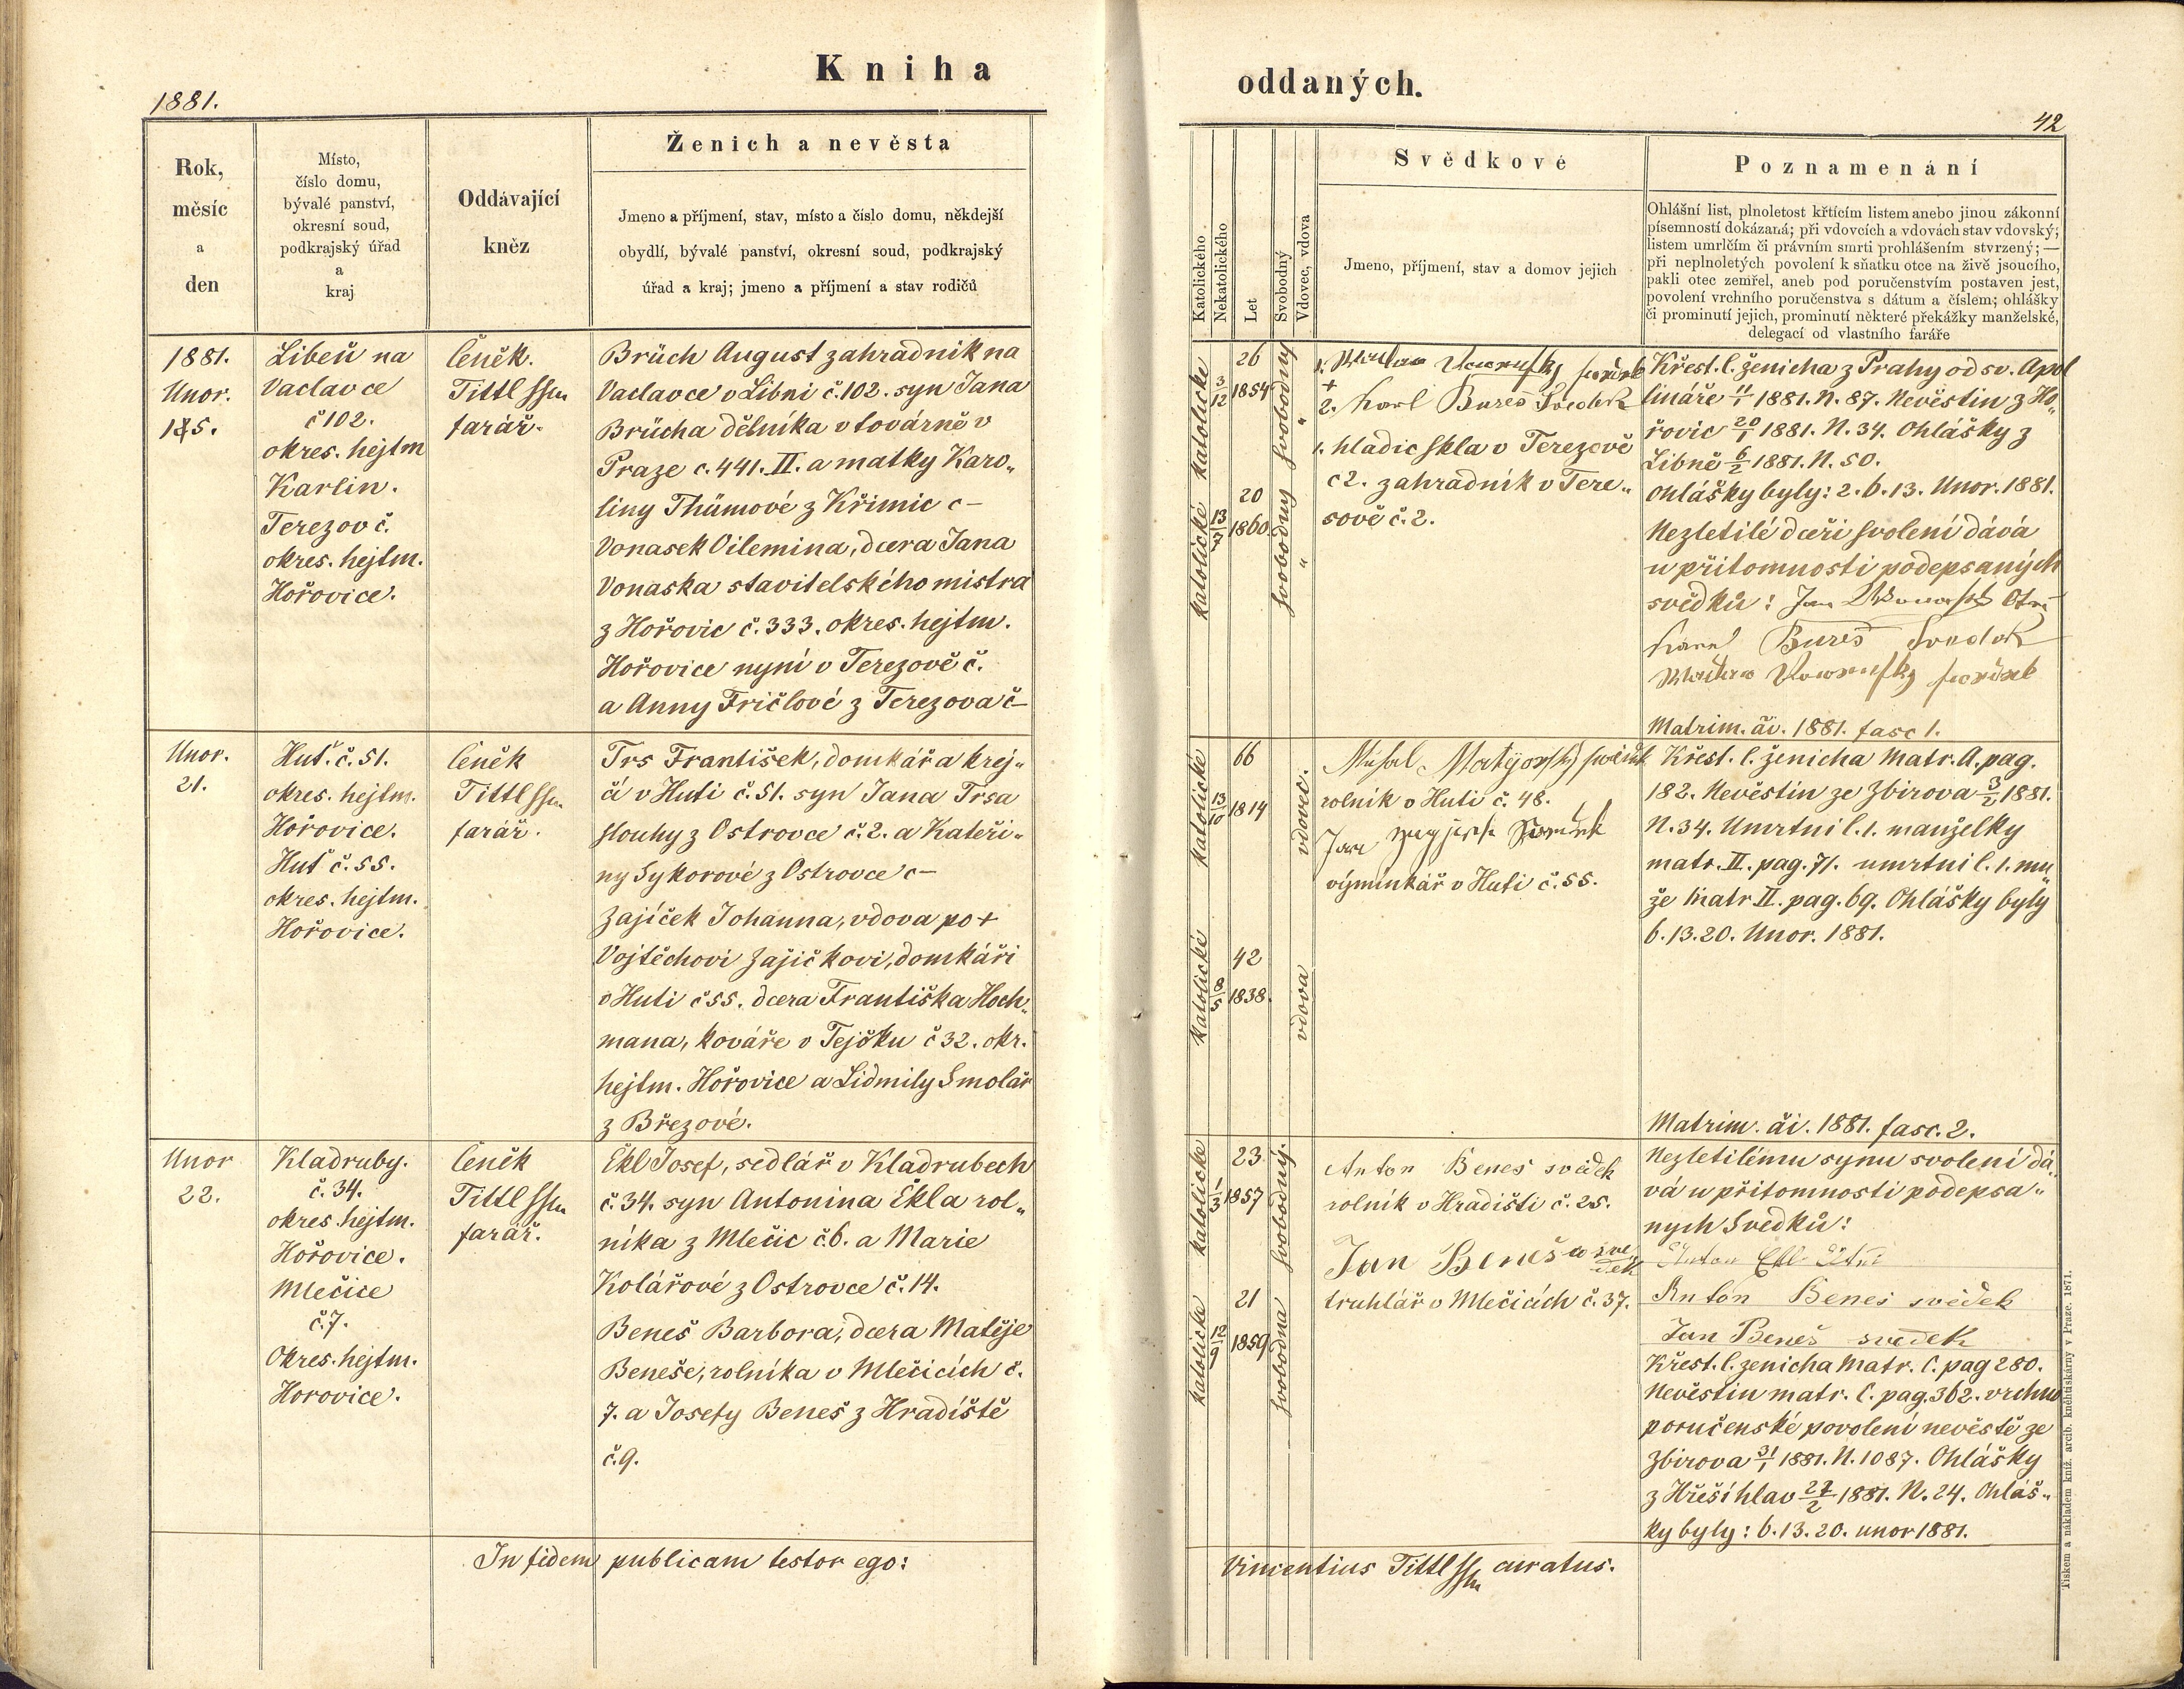 Kniha
1881.
Rok,
měsíc
a
den
Místo,
číslo domu,
bývalé panství,
okresní soud,
podkrajský úřad
a
kraj
Oddávající
kněz
Ženich a nevěsta
Jmeno a příjmení, stav, místo a číslo domu, někdejší
obydlí, bývalé panství, okresní soud, podkrajský
úřad a kraj; jmeno a příjmení a stav rodičů
1881.
Unor.
15.
Libeň na
Vaclavce
č 102.
okres. hejtm
Karlin.
Terezov č.
okres. hejtm.
Hořovice.
Čeněk.
Tittl
farář.
Brüch August zahradnik na
Vaclavce v Libni č. 102. syn Jana
Brücha dělníka v továrně v
Praze c. 441. II. a matky Karo„
liny Thümové z Křimic c –
Vonasek Vilemina, dcera Jana
Vonaska stavitelského mistra
z Hořovic č. 333. okres. hejtm.
Hořovice nyní v Terezově č.
a Anny Fričlové z Terezova č –
Unor.
21.
Huť. č. 51.
okres. hejtm.
Hořovice.
Huť č. 55.
okres. hejtm.
Hořovice.
Čeněk
Tittl
farář.
Trs František, domkář a krej„
čí v Huti č. 51. syn Jana Trsa
slouhy z Ostrovce č. 2. a Kateři„
ny Sykorové z Ostrovce č –
Zajíček Johanna, vdova po +
Vojtěchovi Zajíčkovi, domkáři
v Huti č 55. dcera Františka Hoch„
mana, kováře v Tejčku č 32. okr.
hejtm. Hořovice a Lidmily Smolař
z Březové.
Unor
22.
Kladruby.
č. 34.
okres. hejtm.
Hořovice.
Mlečice
č. 7.
Okres. hejtm.
Horovice.
Čeněk
Tittl
farář.
Ekl Josef, sedlář v Kladrubech
č. 34. syn Antonina Ekla rol„
níka z Mlečic č. 6. a Marie
Kolářové z Ostrovce č. 14.
Beneš Barbora, dcera Matěje
Beneše, rolníka v Mlečicích č.
7. a Josefy Beneš z Hradiště
č. 9.
In fidem publicam testor ego:
oddaných.
42
Katolického
Nekatolického
Let
Svobodný
Vdovec, vdova
Svědkové
Jmeno, příjmení, stav a domov jejich
Poznamenání
Ohlášní list, plnoletost křtícím listem anebo jinou zákonní
písemností dokázaná; při vdovcích a vdovách stav vdovský;
listem umrlčím či právním smrti prohlášením stvrzený; —
při neplnoletých povolení k sňatku otce na živě jsoucího,
pakli otec zemřel, aneb pod poručenstvím postaven jest,
povolení vrchního poručenstva s dátum a číslem; ohlášky
či prominutí jejich, prominutí některé překážky manželské,
delegací od vlastního faráře
katolické
3/12
26
1854
svobodný
katolické
13/7
20
1860
svobodný
1.
2. Karl Bureš Svedek
1. hladic skla v Terezově
c 2. zahradník v Tere„
sově č. 2.
Křest. l. ženicha z Prahy od sv. Apol
lináře 11/1 1881. N. 87. Nevěstin z Ho„
řovic 20/1 1881. N. 34. Ohlášky z
Libně 6/2 1881. N. 50.
Ohlášky byly: 2. 6. 13. Unor. 1881.
Nezletilé dceři svolení dává
u přitomnosti podepsaných
svědků: Jan
Bureš Svedek
Matrim. či. 1881. fasc 1.
katolické
13/10
66
1814
vdovec.
katolické
8/5
42
1838.
vdova
rolník v Huti č. 48.
Jan
výminkář v Huti č. 55.
Křest. l. ženicha Matr. A. pag.
182. Nevěstin ze Zbirova 3/2 1881.
N. 34. Umrtni l. 1. manželky
matr. II. pag. 71. umrtni l. 1. mu„
že Matr II. pag. 69. Ohlášky byly
6. 13. 20. Unor. 1881.
Matrim. či. 1881. fasc. 2.
katolické
1/3
23
1857
svobodný.
katolické
12/9
21
1859
svobodna
Anton Benes svědek
rolník v Hradišti č. 25.
Jan Beneš
truhlář v Mlečicích č. 37.
Nezletilému synu svolení dá„
vá u přitomnosti podepsa„
nych Svedků:
Anton Ekl
Anton Benes svědek
Jan Beneš svedek
Křest. l. zenicha Matr. C. pag 280.
Nevěstin matr. C. pag. 362. vrchno
poručenské povolení nevěstě ze
Zbirova 31/1 1881. N. 1087. Ohlášky
z Hřešihlav 22/2 1881. N. 24. Ohláš„
ky byly: 6. 13. 20. unor 1881.
Vincentius Tittl curatus.
Tiskem a nákladem kníž. arcib. kněhtiskárny v Praze. 1871.